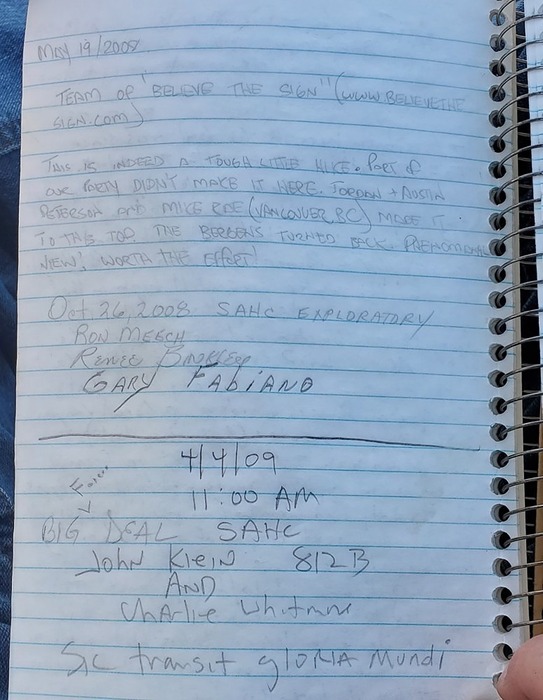 May 19/2008
TEAM OF "BELIEVE THE SIGN" (WWW.BELIEVETHE
SIGN.COM)
THIS IS INDEED A TOUGH LITTLE HIKE. PART OF
OUR PARTY DIDN'T MAKE IT HERE. JORDAN + AUSTIN
PETERSON AND MIKE (VANCOUVER, BC) MADE IT
TO THIS TOP. THE BERGENS TURNED BACK. PHENOMENAL
VIEW! WORTH THE EFFORT!
Oct 26, 2008 SAHC EXPLORATORY
RON MEECH
Renee
GARY FABIANO
4/4/09
11:00 AM
BIG DEAL SAHC
John Klein 812B
AND
Charlie Whitmire
Sic transit gloria Mundi